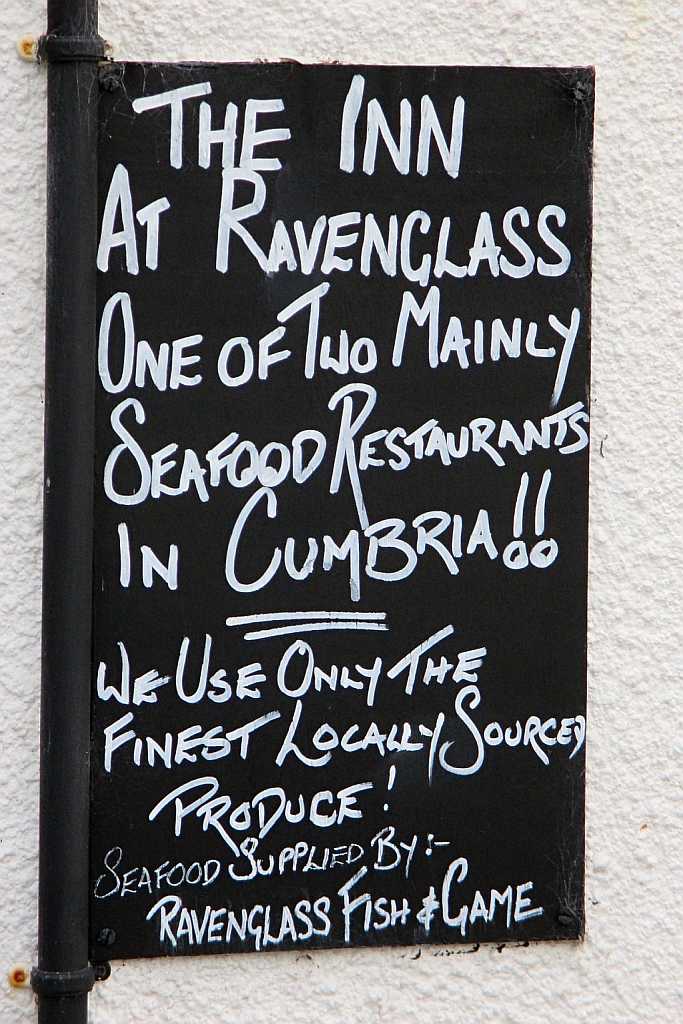 THE INN
AT RAVENGLASS
ONE OF TWO MAINLY
SEAFOOD RESTAURANTS
IN CUMBRIA!!
WE USE ONLY THE
FINEST LOCALLY SOURCED
PRODUCE!
SEAFOOD SUPPLIED BY:-
RAVENGLASS FISH & GAME